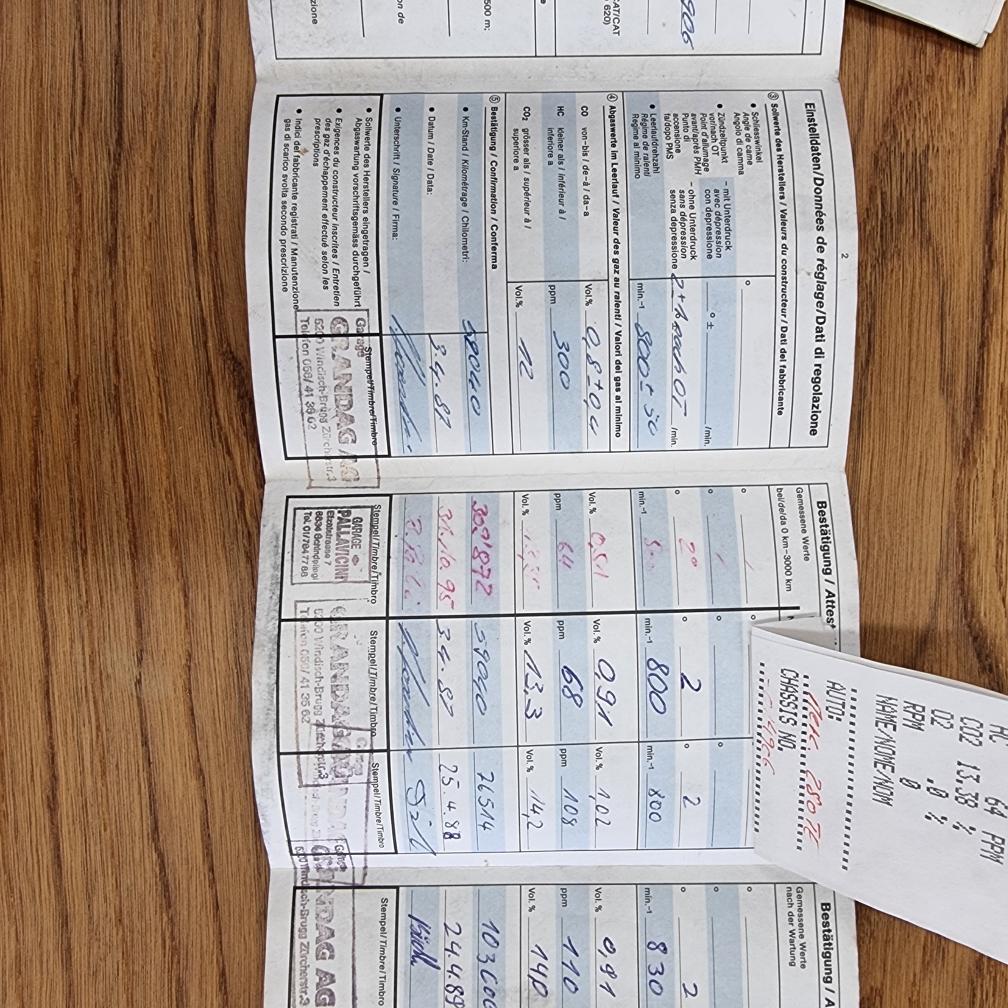 906
CAT/CAT
620)
500 m;
on de
zione
2
Einstelldaten/Données de réglage/Dati di regolazione
③ Sollwerte des Herstellers / Valeurs du constructeur / Dati del fabbricante
• Schliesswinkel
Angle de came
Angolo di camma
°
• Zündzeitpunkt
vor/nach OT
Point d'allumage
avant/après PMH
Punto di
accensione
fa/dopo PMS
– mit Unterdruck
avec dépression
con depressione
° ±
/min.
– ohne Unterdruck
sans dépression
senza depressione
nach OT
/min.
• Leerlaufdrehzahl
Régime de ralenti
Regime al minimo
min.-1 800 ± 50
④ Abgaswerte im Leerlauf / Valeur des gaz au ralenti / Valori dei gas al minimo
CO von–bis / de–à / da–a
Vol.% 0,8 ± 0,4
HC kleiner als / inférieur à /
inferiore a
ppm 300
CO₂ grösser als / supérieur à /
superiore a
Vol.% 12
⑤ Bestätigung / Confirmation / Conferma
• Km-Stand / Kilométrage / Chilometri:
59040
• Datum / Date / Data:
3.4.87
• Unterschrift / Signature / Firma:
• Sollwerte des Herstellers eingetragen /
Abgaswartung vorschriftsgemäss durchgeführt
• Exigences du constructeur inscrites / Entretien
des gaz d'échappement effectué selon les
prescriptions
• Indici del fabbricante registrati / Manutenzione
gas di scarico svolta secondo prescrizione
Stempel/Timbre/Timbro
Garage
GRANDAG AG
5200 Windisch-Brugg Zürcherstr.3
Telefon 056/ 41 36 62
Bestätigung / Attest
Gemessene Werte
bei/de/da 0 km–3000 km
° 2° ° 2 ° 2
min.-1 min.-1 800 min.-1 800
Vol.% 0,51 Vol.% 0,91 Vol.% 1,02
ppm 64 ppm 68 ppm 108
Vol.% Vol.% 13,3 Vol.% 14,2
302'872 59040 76514
31.10.95 3.4.87 25.4.88
Stempel/Timbre/Timbro Stempel/Timbre/Timbro Stempel/Timbre/Timbro
GARAGE
PALLAVICINI
Etzelstrasse 7
8834 Schindellegi
Tel. 01/784 77 88
GRANDAG AG
5200 Windisch-Brugg Zürcherstr.3
Telefon 056/ 41 36 62
HC 64 PPM
CO2 13.38 %
O2 .0 %
RPM 0
NAME/NOME/NOM
AUTO:
CHASSIS NO.
Bestätigung / A
Gemessene Werte
nach der Wartung
° 2
min.-1 830
Vol.% 0,91
ppm 110
Vol.% 14,0
24.4.89
Stempel/Timbre/Timbro
GRANDAG AG
5200 Windisch-Brugg Zürcherstr.3